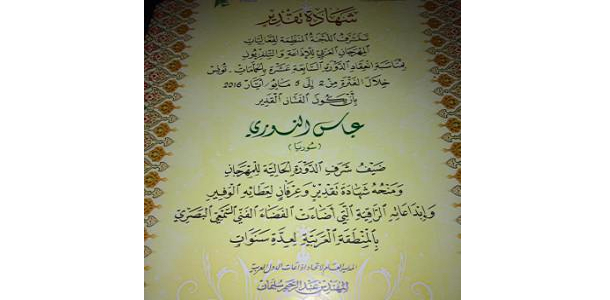 شهادة تقدير
تتشرف اللجنة المنظمة لفعاليات
المهرجان العربي للإذاعة والتلفزيون
بمناسبة انعقاد الدورة السابعة عشرة بالحمامات - تونس
خلال الفترة من 2 إلى 5 مايو/أيار 2016
بأن يكون الفنان القدير
عباس النوري
(سوريا)
ضيف شرف الدورة الحالية للمهرجان
ومنحه شهادة تقدير وعرفان لعطائه الوفير
وإبداعاته الراقية التي أضاءت الفضاء الفني السمعي البصري
بالمنطقة العربية لعدة سنوات
المدير العام لاتحاد إذاعات الدول العربية
المهندس عبد الرحيم سليمان